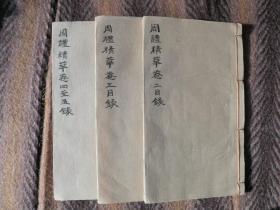 周禮精華卷二目錄
周禮精華卷三目錄
周禮精華卷四至五錄